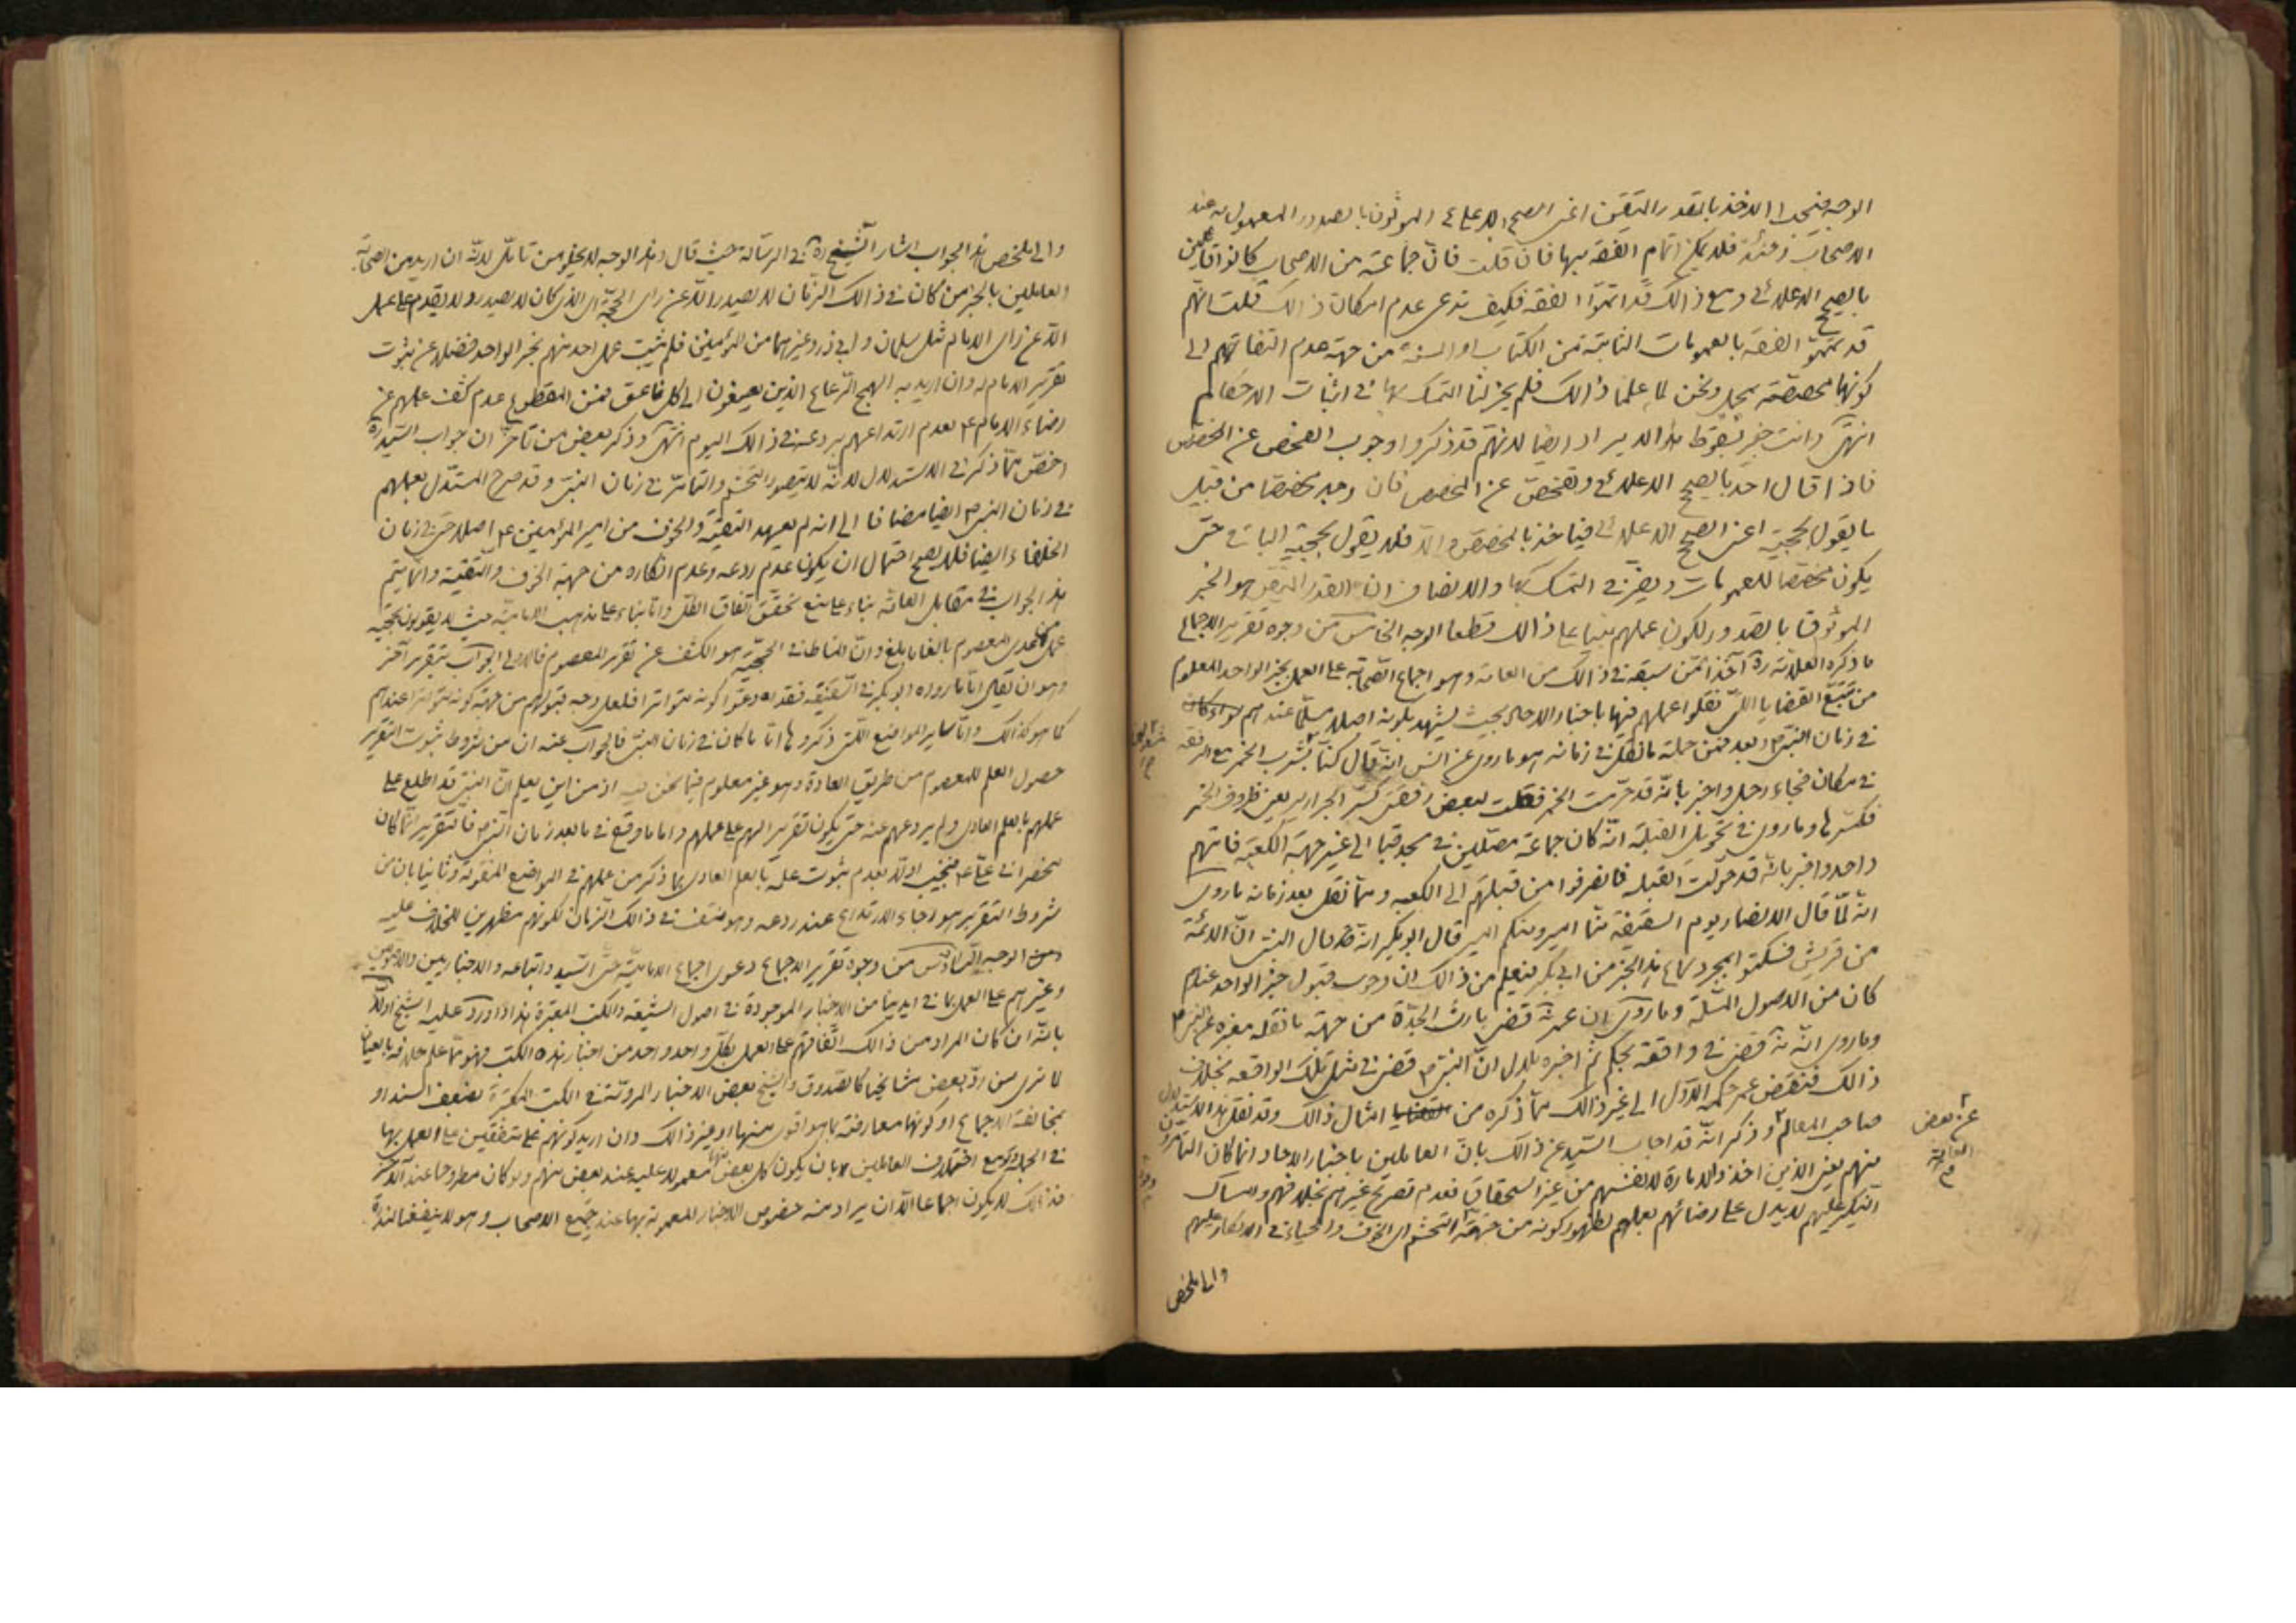 الوجه فيجب الاخذ بالقدر المتيقن اعنى الصحيح الاعلائى الموثوق بالصدور المعمول به عند
الاصحاب وحينئذ فلا يمكن اتمام الفقه بها فان قلت فان جماعة من الاصحاب كانوا قائلين
بالصحيح الاعلائى ومع ذالك قد اتمّوا الفقه فكيف تدعى عدم امكان ذالك قلت انهم
قد تمموا الفقه بالعمومات الثابتة من الكتاب او السنة من جهة عدم التفاتهم الى
كونها مخصصة بمجمل ونحن لما علمنا ذالك فلم يجز لنا التمسك بها فى اثبات الاحكام
انتهى وانت خبير بسقوط هذا الايراد ايضا لانهم قد ذكروا وجوب الفحص عن المخصص
فاذا قال احد بالصحيح الاعلائى وتفحص عن المخصص فان وجد مخصصا من قبيل
ما يقول بحجيته اعنى الصحيح الاعلائى فياخذ بالمخصص والا فلا يقول بحجية الباقى حتى
يكون مخصصا للعمومات ويضر فى التمسك بها والانصاف ان القدر المتيقن هو الخبر
الموثوق بالصدور لكون عملهم مبنيا على ذالك قطعا الوجه الخامس من وجوه تقرير الاجماع
ما ذكره العلامة ره آخذا ممن سبقه فى ذالك من العامة وهو اجماع الصحابة على العمل بخبر الواحد المعلوم
من تتبع القضايا التى نقلوا عملهم فيها باخبار الاحاد بحيث يشهد بكونه اصلا مسلما عندهم سواء كان
فى زمان النبى ص وبعده فمن جملة ما نقل فى زمانه هو ما روى عن انس انه قال كنا نشرب الخمر مع الرفقه
فى مكان فجاء رجل واخبر بانه قد حرمت الخمر فقلت لبعض رفقتى كسّر الجرار يعنى ظروف الخمر
فكسرها وما روى فى تحويل القبلة انه كان جماعة مصلين فى مسجد قبا الى غير جهة الكعبة فاتيهم
واحد واخبر بانه قد حولت القبله فانصرفوا من قبلتهم الى الكعبه ومما نقل بعد زمانه ما روى
انه لما قال الانصار يوم السقيفة منا امير ومنكم امير قال ابوبكر انه قد قال النبى ان الائمة
من قريش فسكتوا بمجرد سماع هذا الخبر من ابى بكر فيعلم من ذالك ان وجوب قبول خبر الواحد عندهم
كان من الاصول المسلمة وما روى ان عمر قضى بارث الجدة من جهة ما نقله مغيره عن النبى ص
وما روى انه قضى فى واقعة بحكم ثم اخبره بلال ان النبى ص قضى فى مثل تلك الواقعه بخلاف
ذالك فنقض عمر حكمه الاول الى غير ذالك مما ذكره من امثال ذالك وقد نقل هذا الاستدلال
صاحب المعالم وذكر انه قد اجاب السيد عن ذالك بان العاملين باخبار الاحاد انما كان المتامرون
منهم يعنى الذين اخذوا الامارة لانفسهم من غير استحقاق فعدم تصريح غيرهم بخلافهم وامساك
النكير عليهم لا يدل على رضائهم بعملهم لظهور كونه من جهة التحشم اى الخوف والحياء فى الانكار عليهم
عن بعض
العامة
والى ملخص
والى ملخص هذا الجواب اشار الشيخ ره فى الرسالة حيث قال وهذا الوجه لا يخلو من تامل لانه ان اريد من الصحابة
العاملين بالخبر من كان فى ذالك الزمان لا يصدر الا عن راى الحجة اى الذى كان لا يصدر ولا يقدم على عمل
الا عن راى الامام مثل سلمان وابى ذر وغيرهما من المؤمنين فلم يثبت عمل احد منهم بخبر الواحد فضلا عن ثبوت
تقرير الامام له وان اريد به الهمج الرعاع الذين يصيغون الى كل ناعق فمن المقطوع عدم كشف عملهم عن
رضاء الامام ع بعدم ارتداعهم بردعه فى ذالك اليوم انتهى وذكر بعض من تاخر ان جواب السيد ره
اخص مما ذكر فى الاستدلال لانه لا يتصور التحشم والتامر فى زمان النبى وقد صرح المستدل بعملهم
فى زمان النبى ص ايضا مضافا الى انه لم يعهد التقية والخوف من امير المؤمنين ع اصلا حتى فى زمان
الخلفاء ايضا فلا يصح احتمال ان يكون عدم ردعه وعدم انكاره من جهة الخوف والتقية وانما يتم
هذا الجواب فى مقابل العامة بناء على منع تحقق اتفاق الكل واما بناء على مذهب الامامية حيث لا يقولون بحجية
عمل ما عدى المعصوم بالغا ما بلغ وان المناط فى الحجية هو الكشف عن تقرير المعصوم فالاولى الجواب بتقرير آخر
وهو ان يقال اما ما رواه ابوبكر فى السقيفة فقد ادعوا كونه متواترا فلعل وجه قبولهم من جهة كونه متواترا عندهم
كما هو كذالك واما ساير المواضع التى ذكروها اما ما كان فى زمان النبى فالجواب عنه ان من شروط ثبوت التقرير
حصول العلم للمعصوم من طريق العادة وهو غير معلوم فيما نحن فيه اذ من اين يعلم ان النبى قد اطلع على
عملهم بالعلم العادى ولم يردعهم عنه حتى يكون تقريرا لهم على عملهم واما ما وقع فى ما بعد زمان النبى ص فالتقرير انما كان
منحصرا فى على ع فنجيب اولا بعدم ثبوت علمه بالعلم العادى بما ذكر من عملهم فى المواضع المنقولة وثانيا بان من
شروط التقرير هو رجاء الارتداع عند ردعه وهو منتف فى ذالك الزمان لكونهم مظهرين للخلاف عليه
ومن الوجه السادس من وجوه تقرير الاجماع دعوى اجماع الامامية حتى السيد واتباعه والاخباريين والاصوليين
وغيرهم على العمل بما فى ايدينا من الاخبار الموجودة فى اصول الشيعة والكتب المعتبرة هذا وأورد عليه الشيخ اولا
بانه ان كان المراد من ذالك اتفاقهم على العمل بكل واحد واحد من اخبار هذه الكتب فهو مما علم خلافه بالعيان
لما نرى من رد بعض مشايخنا كالصدوق والشيخ بعض الاخبار المروية فى الكتب المعتبرة بضعف السند او
بمخالفة الاجماع او كونها معارضة بما هو اقوى منها او غير ذالك وان اريد كونهم متفقين على العمل بها
فى الجملة ولو مع اختلاف العاملين بان يكون كل بعض منها معمولا عليه عند بعض منهم ولو كان مطروحا عند آخر
فذالك لا يكون اجماعا الا ان يراد منه خصوص الاخبار المعمول بها عند جميع الاصحاب وهو لا ينفعنا لندرة